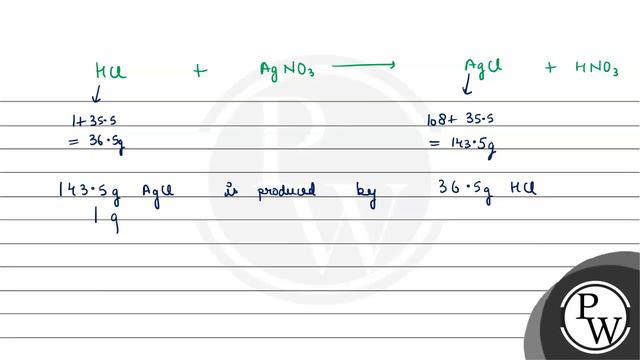 HCl + AgNO₃ ⟶ AgCl + HNO₃
↓ ↓
1+35.5 108+ 35.5
= 36.5g = 143.5g
143.5g AgCl is produced by 36.5g HCl
1 g
PW
PW